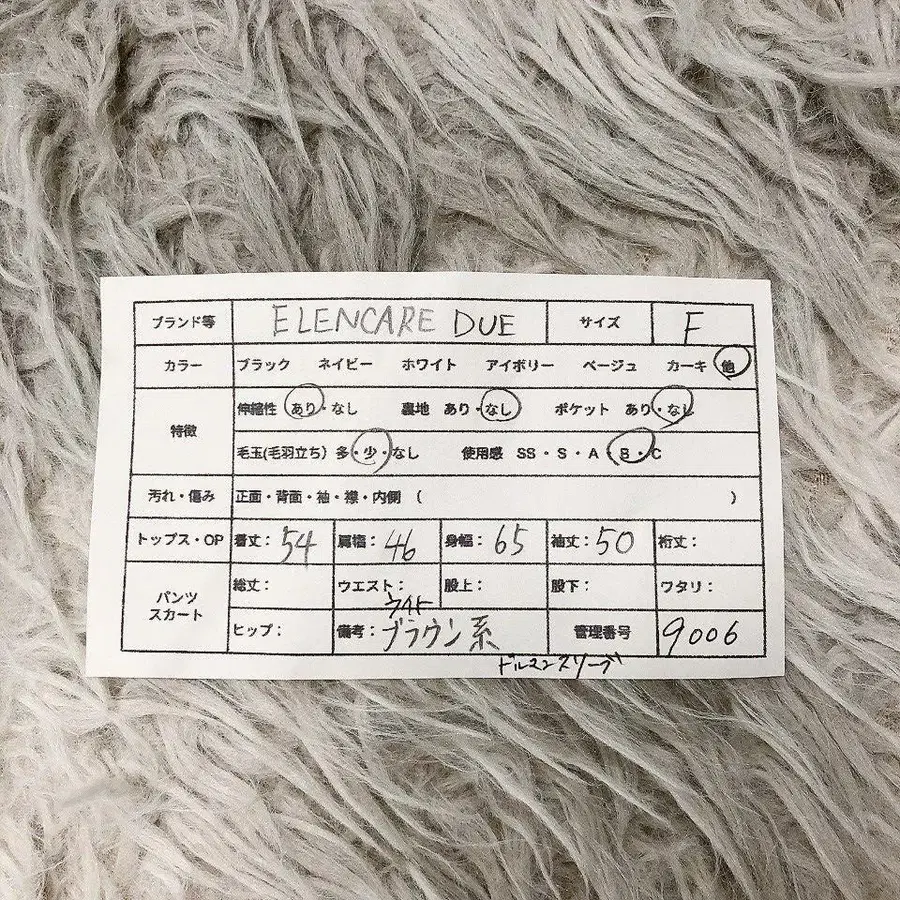 ブランド等 ELENCARE DUE サイズ F
カラー ブラック ネイビー ホワイト アイボリー ベージュ カーキ 他
特徴 伸縮性 あり・なし 裏地 あり・なし ポケット あり・なし
毛玉(毛羽立ち) 多・少・なし 使用感 SS・S・A・B・C
汚れ・傷み 正面・背面・袖・襟・内側 ( )
トップス・OP 着丈: 54 肩幅: 46 身幅: 65 袖丈: 50 裄丈:
パンツ スカート 総丈: ウエスト: 股上: 股下: ワタリ:
ライト
ヒップ: 備考: ブラウン系 管理番号 9006
ドルマンスリーブ